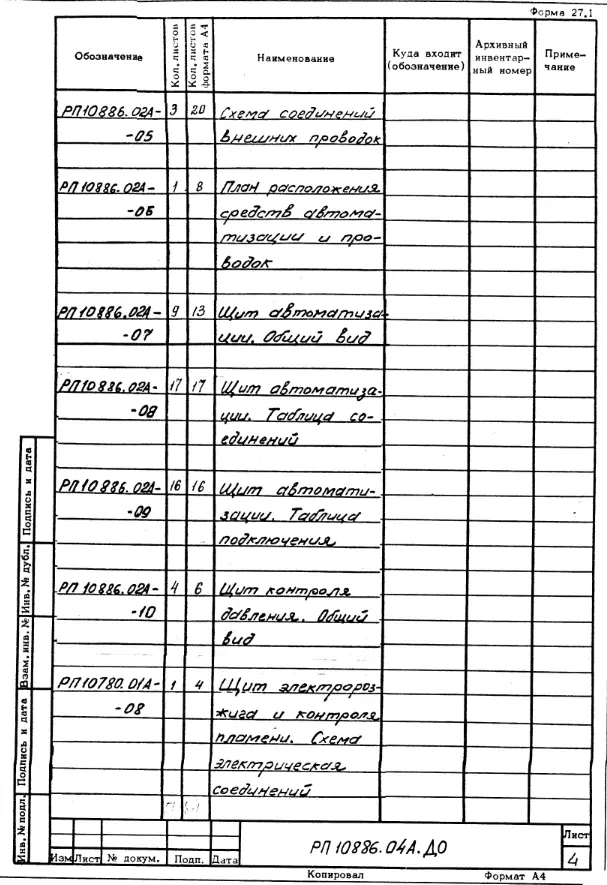 Форма 27.1
Обозначение Кол. листов Кол. листов формата А4 Наименование Куда входит (обозначение) Архивный инвентар- ный номер Приме- чание
РП10886.02А- 3 20 Схема соединений
-05 внешних проводок
РП10886.02А- 1 8 План расположения
-06 средств автома-
тизации и про-
водок
РП10886.02А- 9 13 Щит автоматиза-
-07 ции. Общий вид
РП10886.02А- 17 17 Щит автоматиза-
-08 ции. Таблица со-
единений
РП10886.02А- 16 16 Щит автомати-
-09 зации. Таблица
подключения
РП 10886.02А- 4 6 Щит контроля
-10 давления. Общий
вид
РП10780.01А- 1 4 Щит электророз-
-08 жига и контроля
пламени. Схема
электрическая
соединений
Инв. № подл. Подпись и дата Взам. инв. № Инв. № дубл. Подпись и дата
Изм Лист № докум. Подп. Дата
РП 10886.04А.ДО
Лист
4
Копировал Формат А4